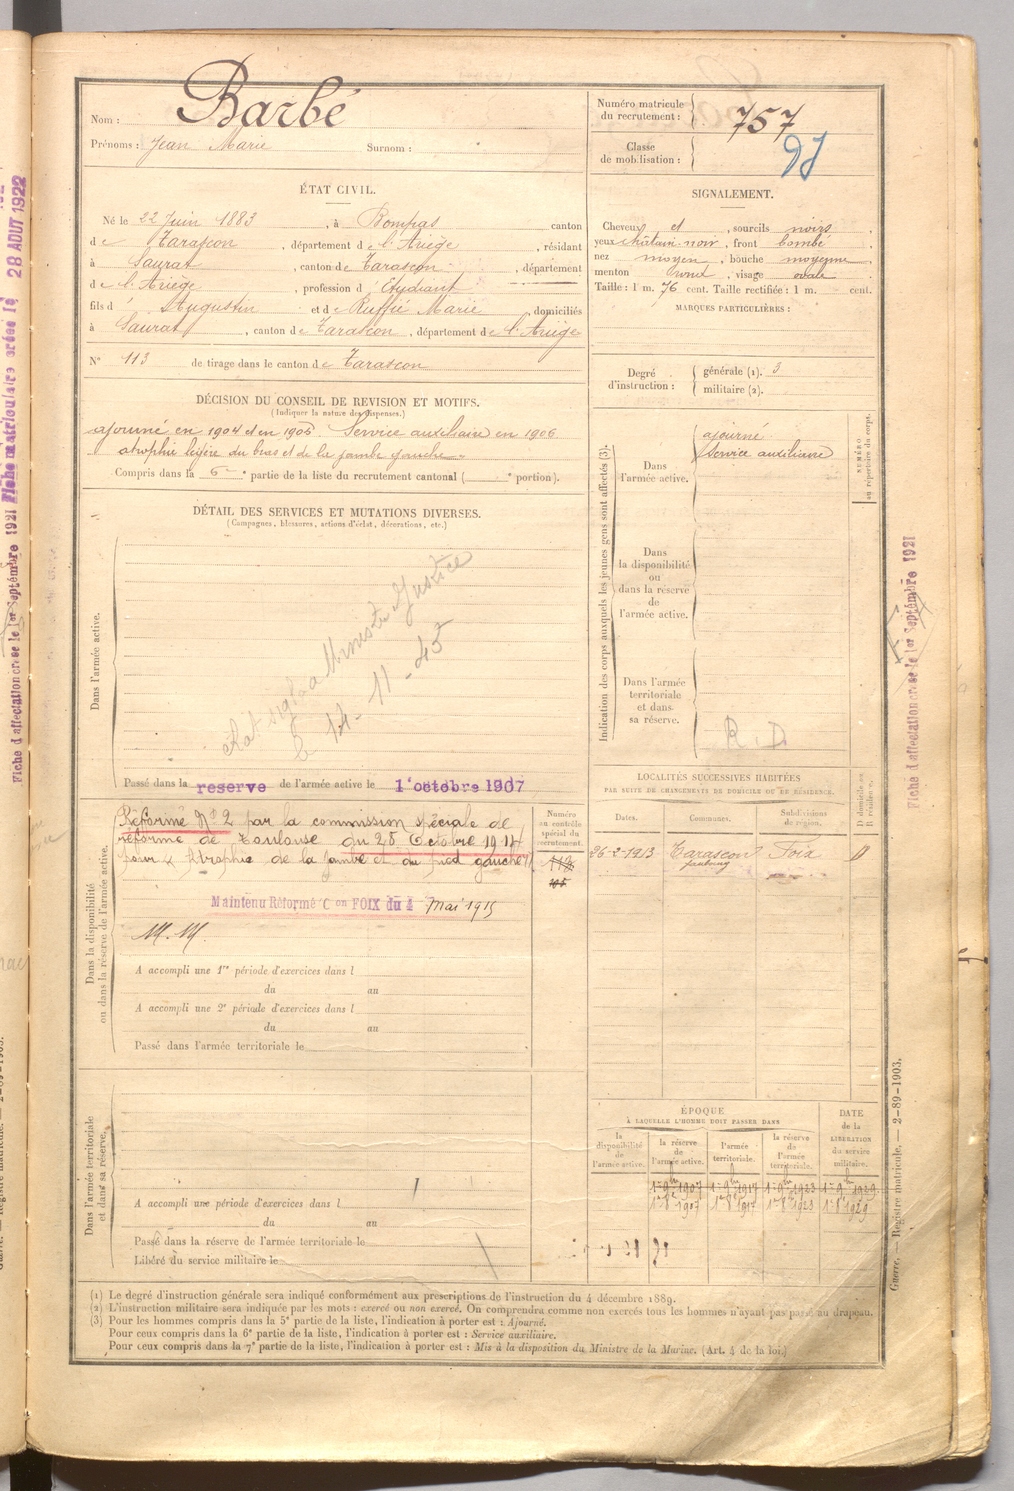 Nom : Barbé
Prénoms : Jean Marie Surnom :
Numéro matricule du recrutement : 757
Classe de mobilisation :
ÉTAT CIVIL.
Né le 22 Juin 1883, à Bompas canton
de Tarascon, département de l'Ariège, résidant
à Saurat, canton de Tarascon, département
de l'Ariège, profession d'Étudiant
fils d'Augustin et de Ruffié Marie, domiciliés
à Saurat, canton de Tarascon, département de l'Ariège
N° 113 de tirage dans le canton de Tarascon
SIGNALEMENT.
Cheveux et, sourcils noirs,
yeux châtain-noir, front bombé,
nez moyen, bouche moyenne,
menton rond, visage ovale.
Taille : 1 m. 76 cent. Taille rectifiée : 1 m. cent.
MARQUES PARTICULIÈRES :
Degré d'instruction : générale (1). 3
militaire (2).
DÉCISION DU CONSEIL DE REVISION ET MOTIFS.
(Indiquer la nature des dispenses.)
ajourné en 1904 et en 1905. Service auxiliaire en 1906
atrophie légère du bras et de la jambe gauche
Compris dans la 6e partie de la liste du recrutement cantonal ( portion).
DÉTAIL DES SERVICES ET MUTATIONS DIVERSES.
(Campagnes, blessures, actions d'éclat, décorations, etc.)
Dans l'armée active.
Ministre Justice
le 14-11-45
Passé dans la reserve de l'armée active le 1er octobre 1907
Indication des corps auxquels les jeunes gens sont affectés (3).
NUMÉRO au répertoire du corps.
Dans l'armée active.
ajourné
Service auxiliaire
Dans la disponibilité ou dans la réserve de l'armée active.
Dans l'armée territoriale et dans sa réserve.
R. D.
Dans la disponibilité ou dans la réserve de l'armée active.
Réformé N° 2 par la commission spéciale de
réforme de Toulouse du 28 Octobre 1914
pour « Atrophie de la jambe et du pied gauche »
Maintenu Réformé Con FOIX du 4 Mai 1915
M. M.
Numéro au contrôle spécial du recrutement.
A accompli une 1re période d'exercices dans l
du au
A accompli une 2e période d'exercices dans l
du au
Passé dans l'armée territoriale le
LOCALITÉS SUCCESSIVES HABITÉES
PAR SUITE DE CHANGEMENTS DE DOMICILE OU DE RÉSIDENCE.
Dates. Communes. Subdivisions de région. D domicile ou R résidence.
26-2-1913 Tarascon Foix D
faubourg
Dans l'armée territoriale et dans sa réserve.
A accompli une période d'exercices dans l
du au
Passé dans la réserve de l'armée territoriale le
Libéré du service militaire le
ÉPOQUE
À LAQUELLE L'HOMME DOIT PASSER DANS
la disponibilité de l'armée active.
la réserve de l'armée active.
l'armée territoriale.
la réserve de l'armée territoriale.
DATE de la LIBÉRATION du service militaire.
1er 9bre 1907 1er 9bre 1917 1er 9bre 1923 1er 9bre 1929
1er 8bre 1907 1er 8bre 1917 1er 8bre 1923 1er 8bre 1929
(1) Le degré d'instruction générale sera indiqué conformément aux prescriptions de l'instruction du 4 décembre 1889.
(2) L'instruction militaire sera indiquée par les mots : exercé ou non exercé. On comprendra comme non exercés tous les hommes n'ayant pas passé au drapeau.
(3) Pour les hommes compris dans la 5e partie de la liste, l'indication à porter est : Ajourné.
Pour ceux compris dans la 6e partie de la liste, l'indication à porter est : Service auxiliaire.
Pour ceux compris dans la 7e partie de la liste, l'indication à porter est : Mis à la disposition du Ministre de la Marine. (Art. 4 de la loi.)
Guerre. — Registre matricule. — 2-89-1903.
Fiche d'affectation créée le 1er Septembre 1921
Fiche d'affectation créée le 1er Septembre 1921 Fiche matriculaire créée le 28 AOUT 1922